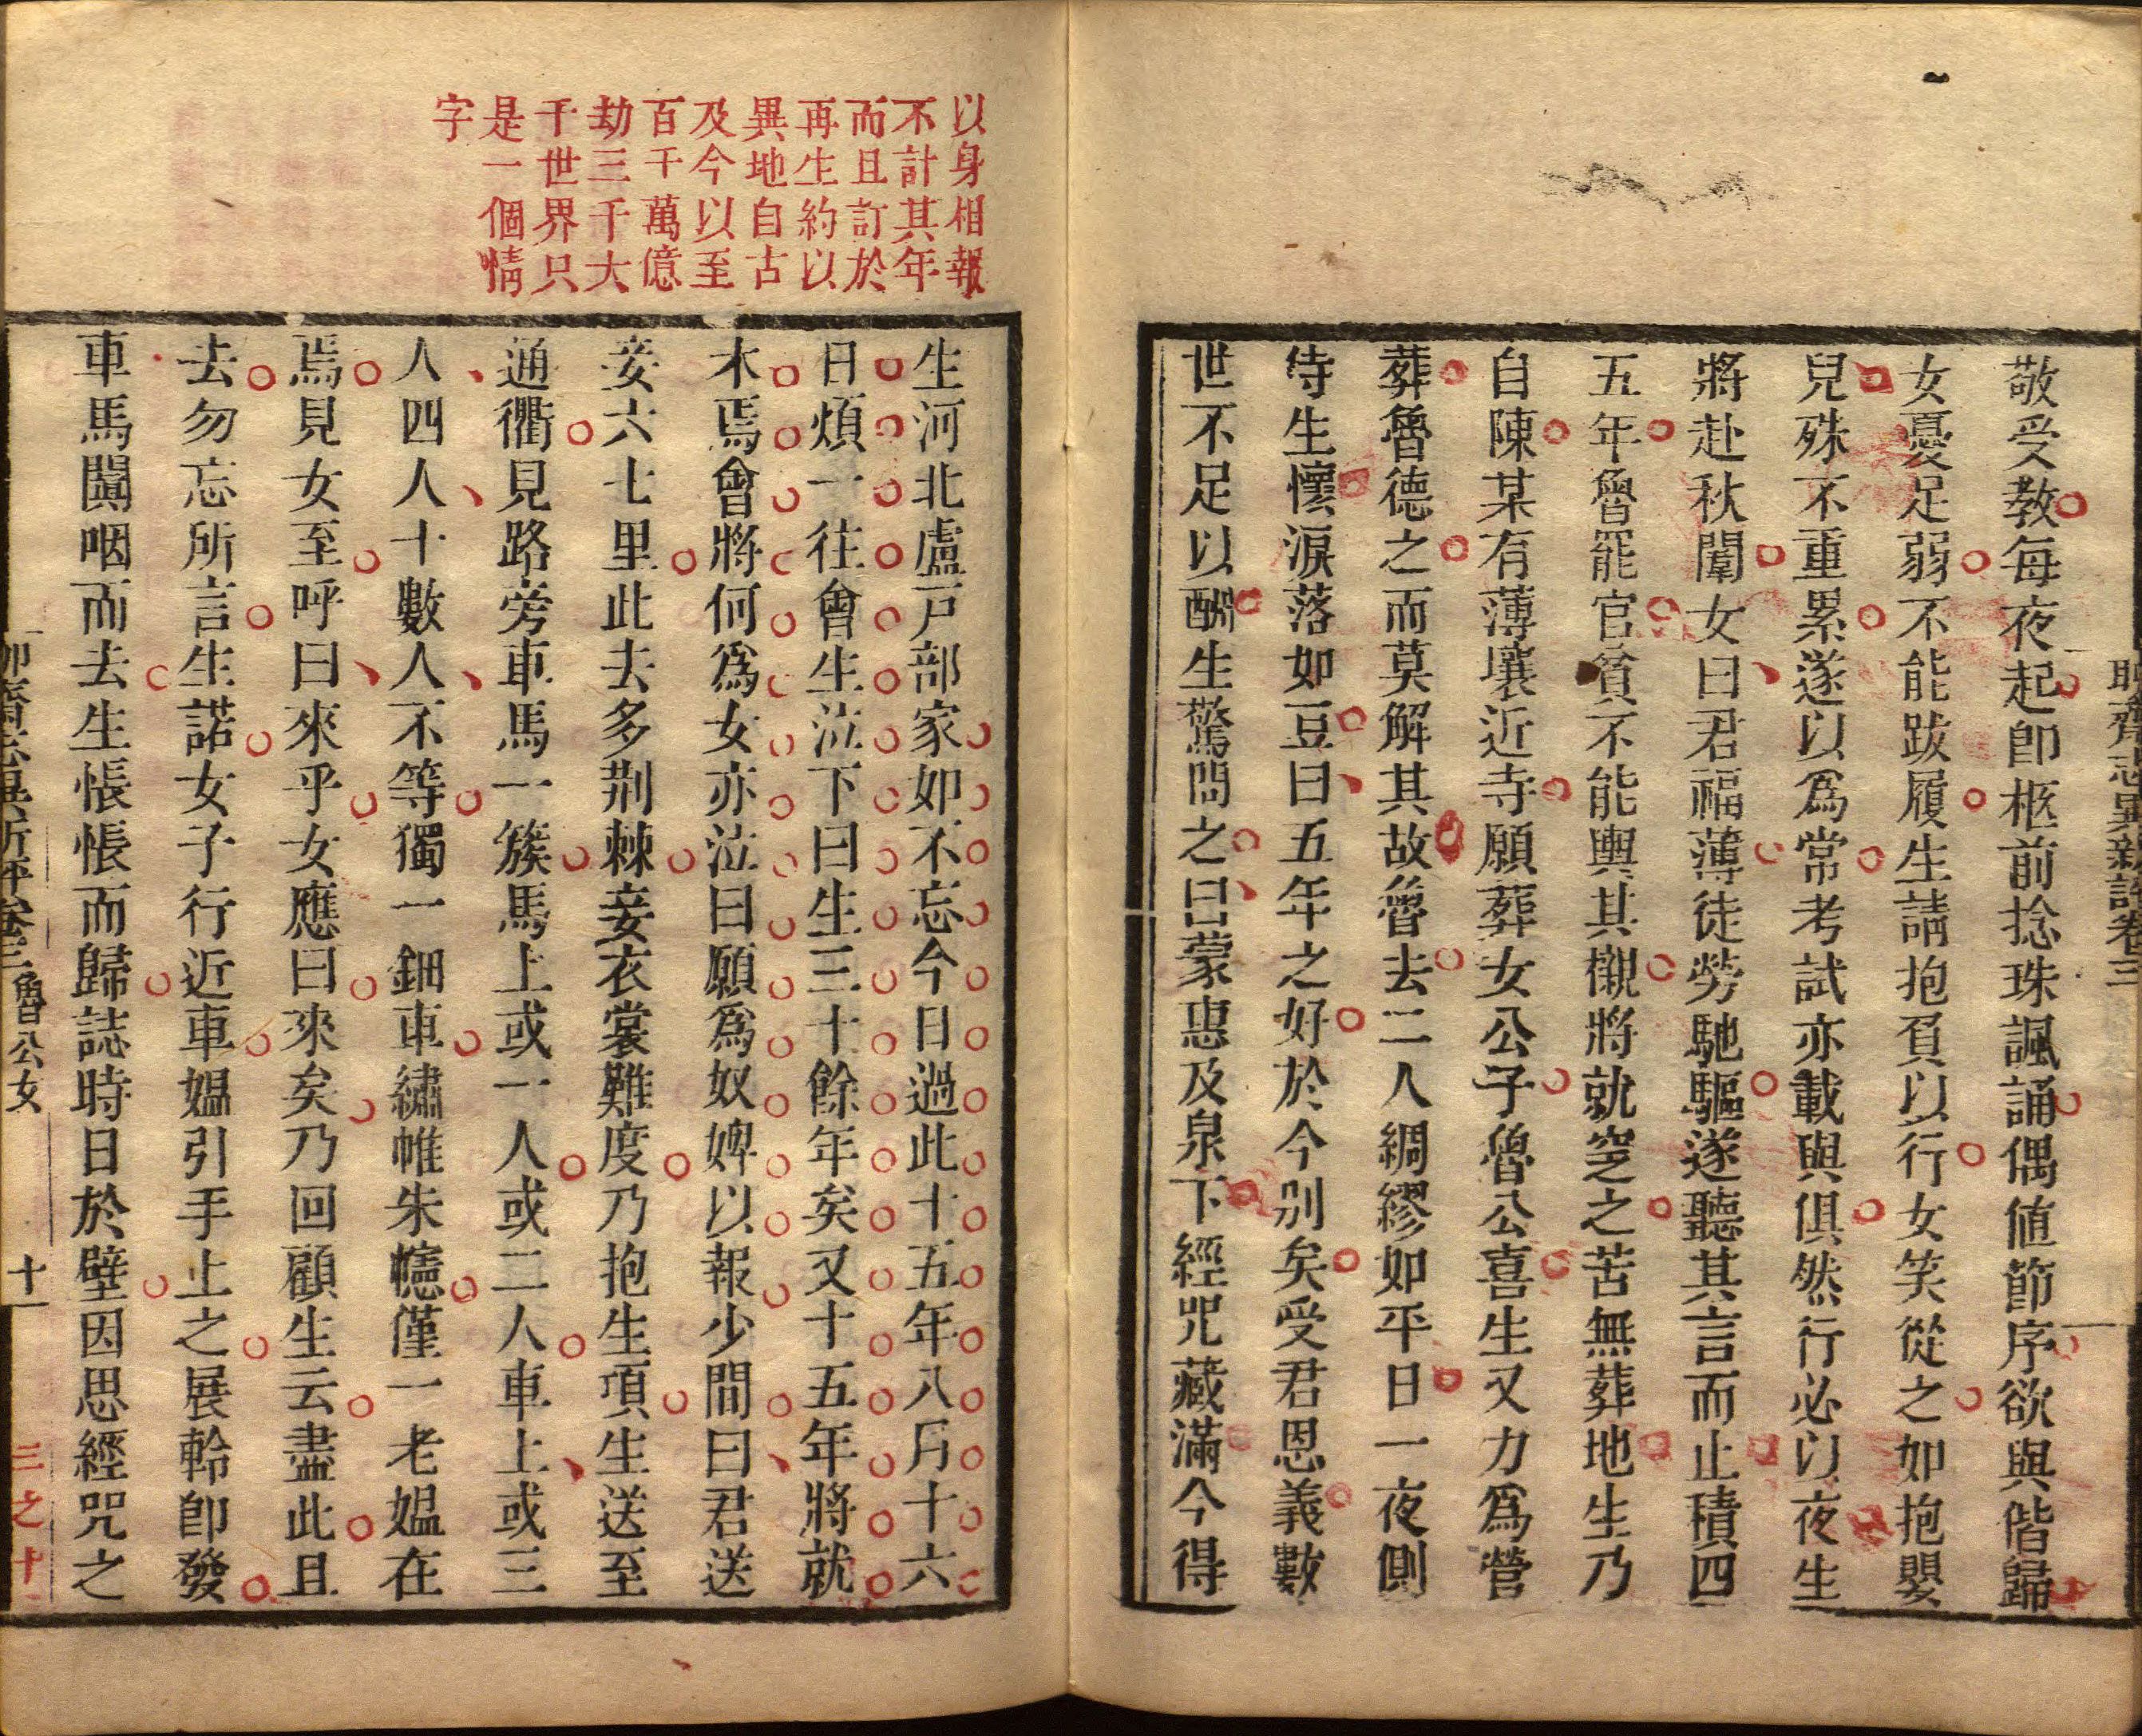 聊齋志異新評卷三
敬受教每夜起卽柩前捻珠諷誦偶値節序欲與偕歸
女憂足弱不能跋履生請抱負以行女笑從之如抱嬰
兒殊不重累遂以爲常考試亦載與俱然行必以夜生
將赴秋闈女曰君福薄徒勞馳驅遂聽其言而止積四
五年魯罷官貧不能輿其櫬將就窆之苦無葬地生乃
自陳某有薄壤近寺願葬女公子魯公喜生又力爲營
葬魯德之而莫解其故魯去二人綢繆如平日一夜側
倚生懷淚落如豆曰五年之好於今別矣受君恩義數
世不足以酬生驚問之曰蒙惠及泉下經咒藏滿今得
以身相報
不計其年
而且訂於
再生約以
異地自古
及今以至
百千萬億
劫三千大
千世界只
是一個情
字
生河北盧戸部家如不忘今日過此十五年八月十六
日煩一往會生泣下曰生三十餘年矣又十五年將就
木焉會將何爲女亦泣曰願爲奴婢以報少間曰君送
妾六七里此去多荆棘妾衣裳難度乃抱生項生送至
通衢見路旁車馬一簇馬上或一人或二人車上或三
人四人十數人不等獨一鈿車繡帷朱幰僅一老媼在
焉見女至呼曰來乎女應曰來矣乃回顧生云盡此且
去勿忘所言生諾女子行近車媼引手上之展軨卽發
車馬闐咽而去生悵悵而歸誌時日於壁因思經咒之
聊齋志異新評卷三 魯公女 十一
三之十一